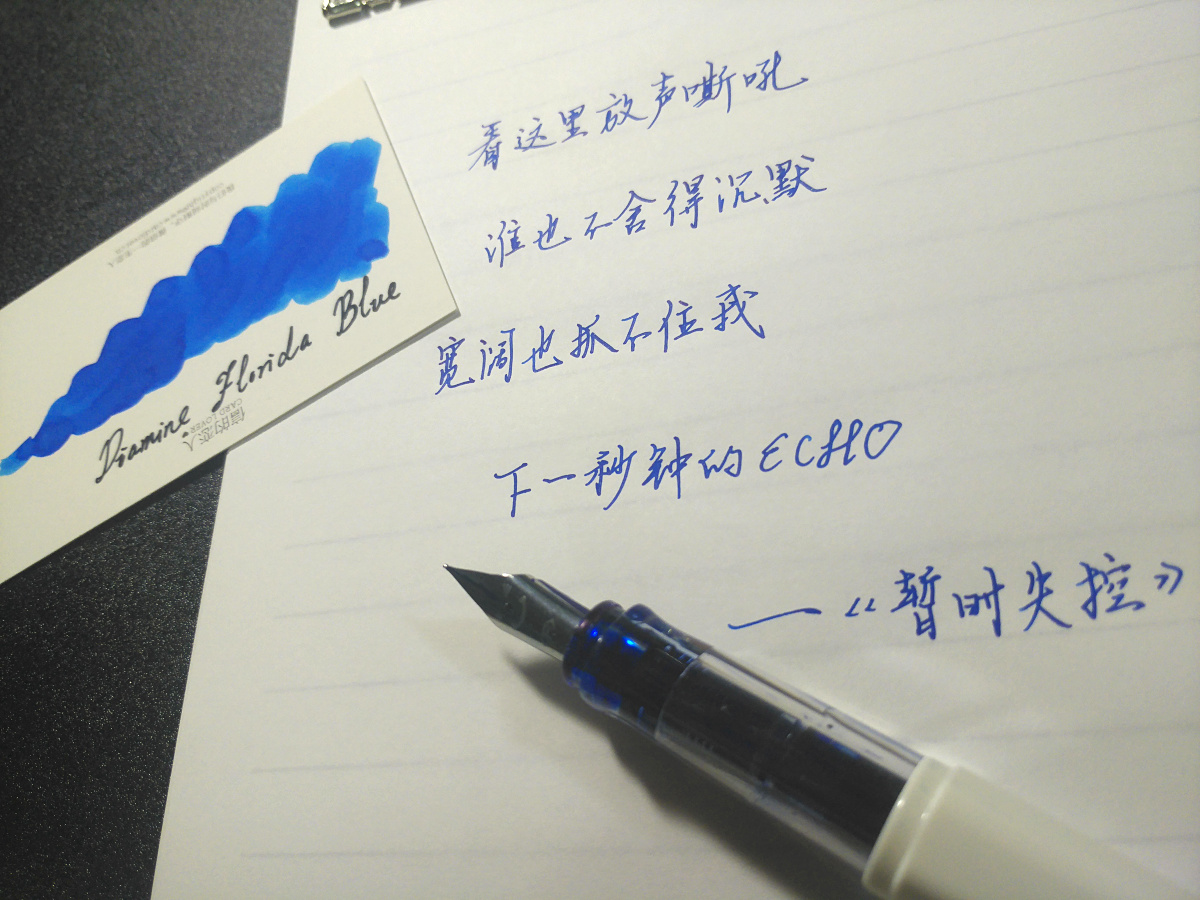 看这里放声嘶吼
谁也不舍得沉默
宽阔也抓不住我
下一秒钟的ECHO
——《暂时失控》
Diamine Florida Blue
信的恋人
CARD LOVER